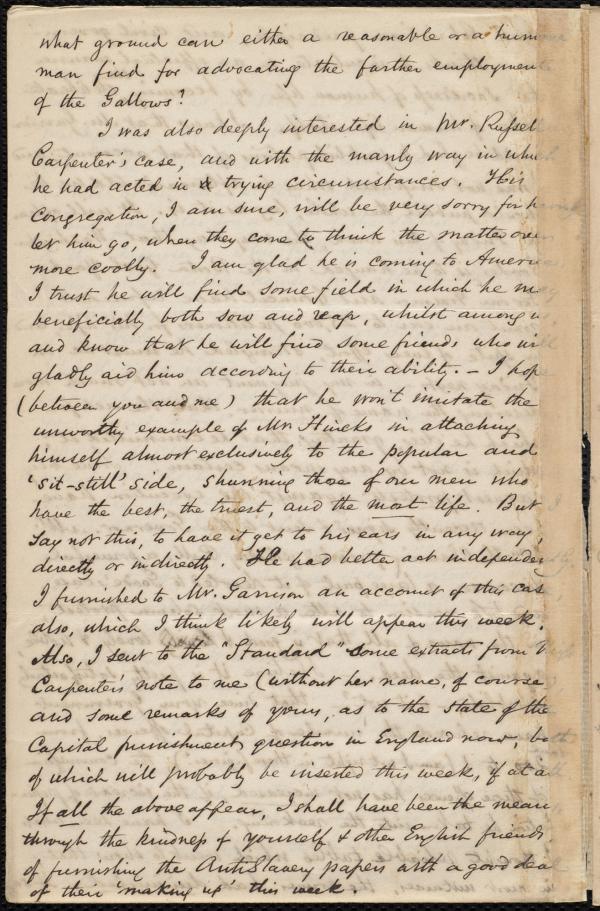 what ground can either a reasonable or a humane
man find for advocating the farther employment
of the Gallows?
I was also deeply interested in Mr. Russell
Carpenter's case, and with the manly way in which
he had acted in trying circumstances. His
congregation, I am sure, will be very sorry for having
let him go, when they come to think the matter over
more coolly. I am glad he is coming to America
I trust he will find some field in which he may
beneficially both sow and reap, whilst among us
and know that he will find some friends who will
gladly aid him according to their ability. – I hope
(between you and me) that he won't imitate the
unworthy example of Mr. Hincks in attaching
himself almost exclusively to the popular and
'sit-still' side, shunning those of our men who
have the best, the truest, and the most life. But I
say not this, to have it get to his ears in any way,
directly or indirectly. He had better act independently
I furnished to Mr. Garrison an account of this case
also, which I think likely will appear this week.
Also, I sent to the "Standard" some extracts from
Carpenter's note to me (without her name, of course)
and some remarks of yours, as to the state of the
Capital punishment question in England now, both
of which will probably be inserted this week, if at all
If all the above appear, I shall have been the means
through the kindness of yourself & other English friends
of furnishing the AntiSlavery papers with a good deal
of their 'making up' this week.